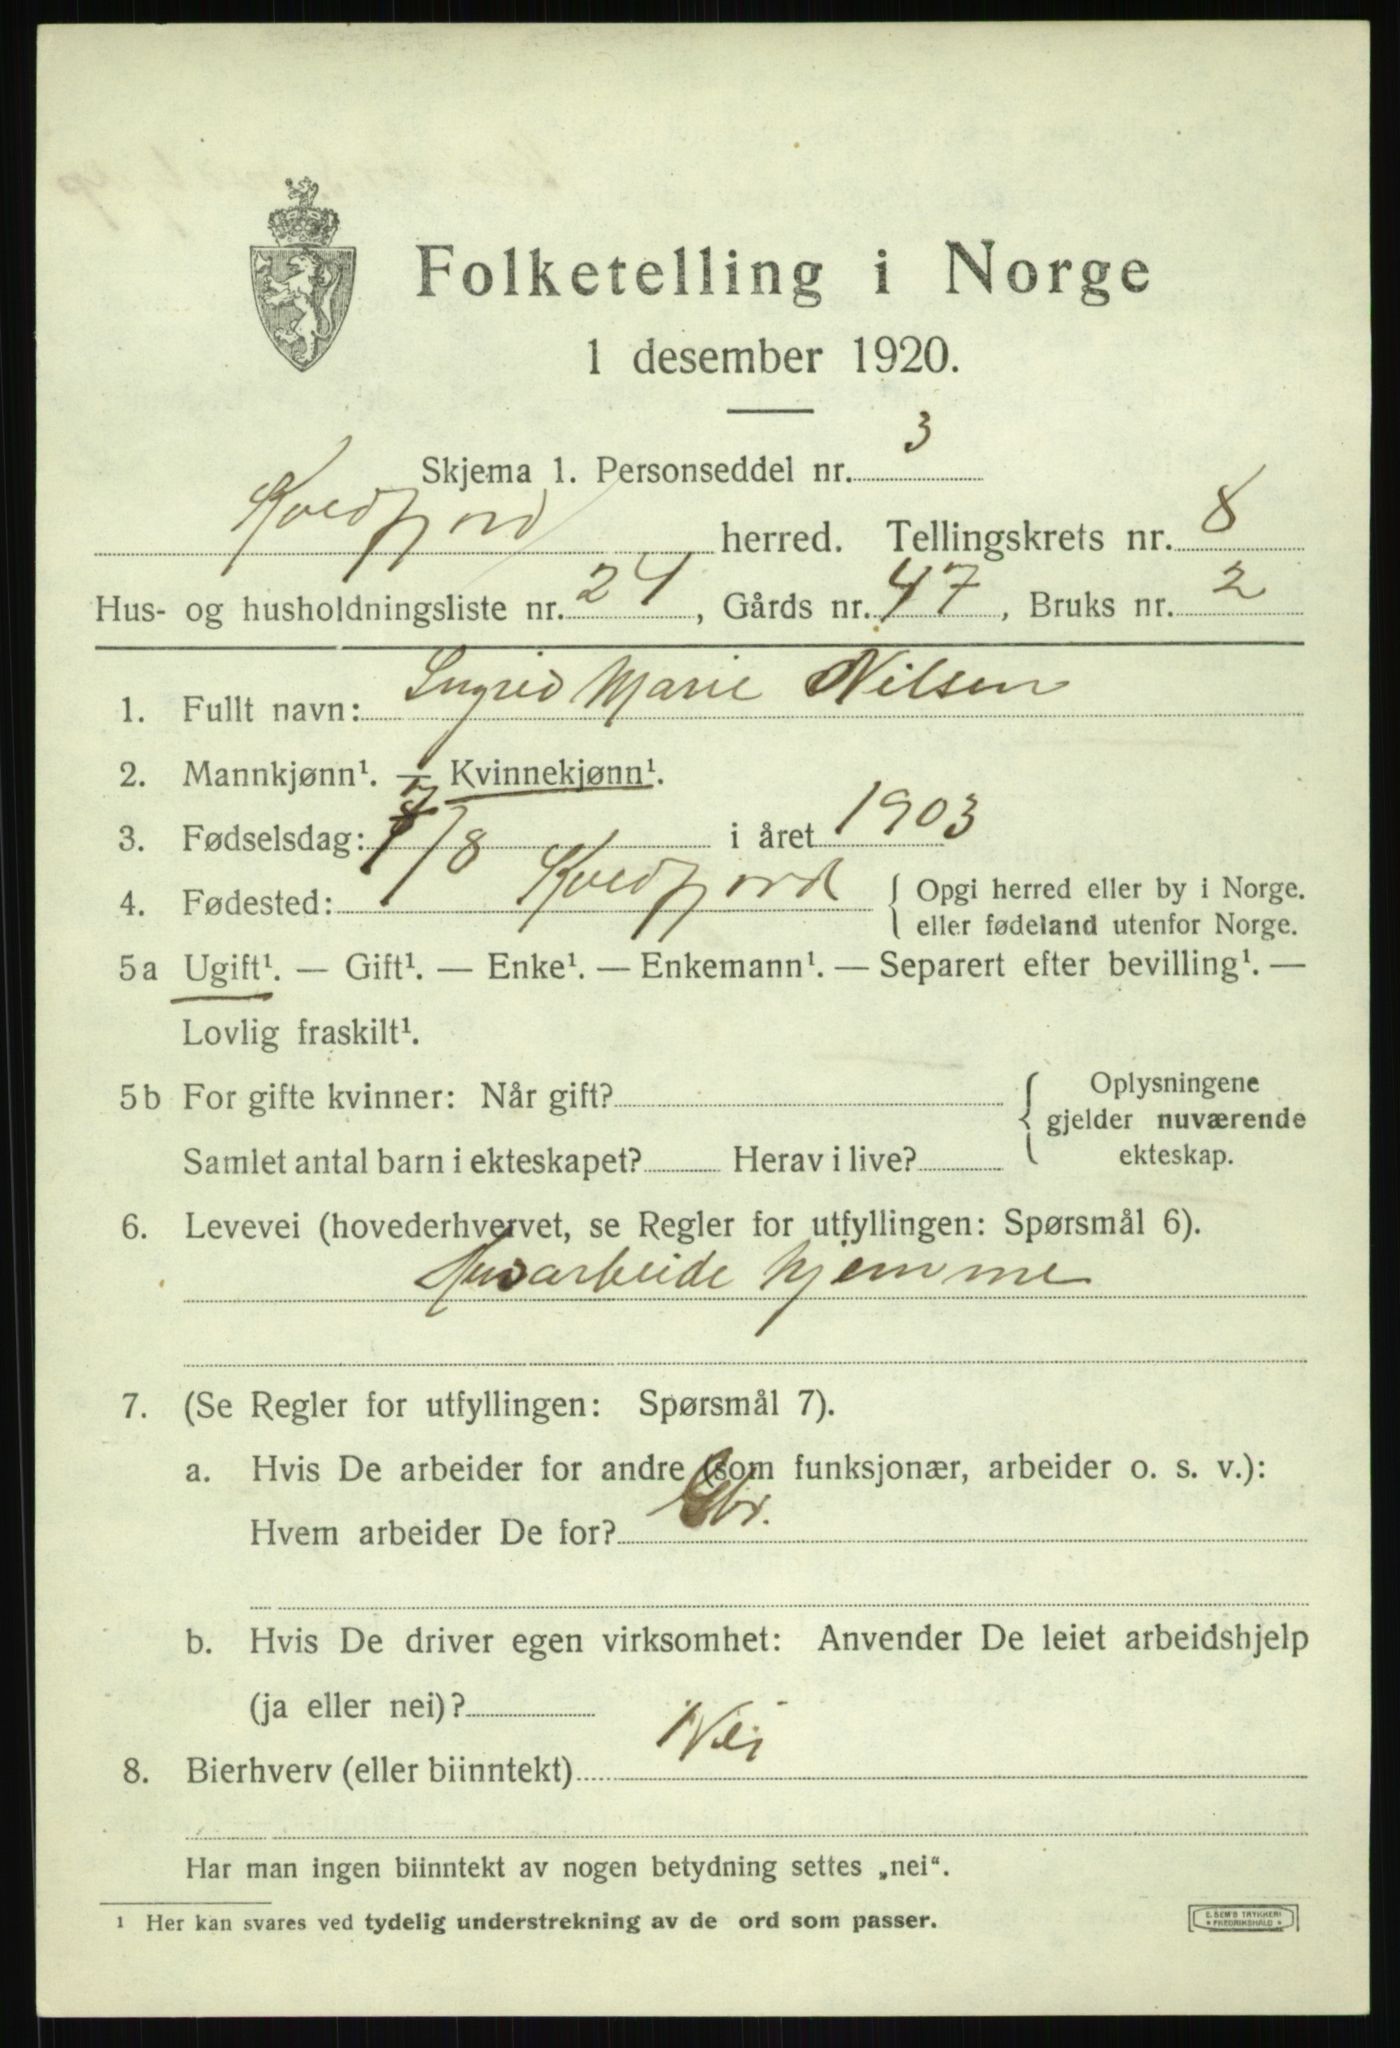 Folketelling i Norge
1 desember 1920.
Skjema 1. Personseddel nr. 3
Kvedfjord herred. Tellingskrets nr. 8
Hus- og husholdningsliste nr. 24, Gårds nr. 47, Bruks nr. 2
1. Fullt navn: Ingrid Marie Nilsen
2. Mannkjønn¹. — Kvinnekjønn¹.
3. Fødselsdag: 7/8 i året 1903
4. Fødested: Kvedfjord { Opgi herred eller by i Norge.
eller fødeland utenfor Norge.
5a Ugift¹. — Gift¹. — Enke¹. — Enkemann¹. — Separert efter bevilling¹. —
Lovlig fraskilt¹.
5b For gifte kvinner: Når gift? { Oplysningene
gjelder nuværende
Samlet antal barn i ekteskapet? Herav i live? ekteskap.
6. Levevei (hovederhvervet, se Regler for utfyllingen: Spørsmål 6).
Husarbeide hjemme
7. (Se Regler for utfyllingen: Spørsmål 7).
a. Hvis De arbeider for andre (som funksjonær, arbeider o. s. v.):
Hvem arbeider De for?
b. Hvis De driver egen virksomhet: Anvender De leiet arbeidshjelp
(ja eller nei)?
8. Bierhverv (eller biinntekt) Nei
Har man ingen biinntekt av nogen betydning settes „nei“.
¹ Her kan svares ved tydelig understrekning av de ord som passer.
E. SEM'S TRYKKERI
FREDRIKSHALD